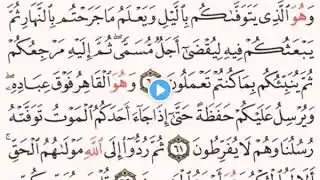 وَهُوَ ٱلَّذِي يَتَوَفَّىٰكُم بِٱلَّيۡلِ وَيَعۡلَمُ مَا جَرَحۡتُم بِٱلنَّهَارِ ثُمَّ
يَبۡعَثُكُمۡ فِيهِ لِيُقۡضَىٰٓ أَجَلٞ مُّسَمّٗىۖ ثُمَّ إِلَيۡهِ مَرۡجِعُكُمۡ
ثُمَّ يُنَبِّئُكُم بِمَا كُنتُمۡ تَعۡمَلُونَ ٦٠ وَهُوَ ٱلۡقَاهِرُ فَوۡقَ عِبَادِهِۦۖ
وَيُرۡسِلُ عَلَيۡكُمۡ حَفَظَةً حَتَّىٰٓ إِذَا جَآءَ أَحَدَكُمُ ٱلۡمَوۡتُ تَوَفَّتۡهُ
رُسُلُنَا وَهُمۡ لَا يُفَرِّطُونَ ٦١ ثُمَّ رُدُّوٓاْ إِلَى ٱللَّهِ مَوۡلَىٰهُمُ ٱلۡحَقِّۚ